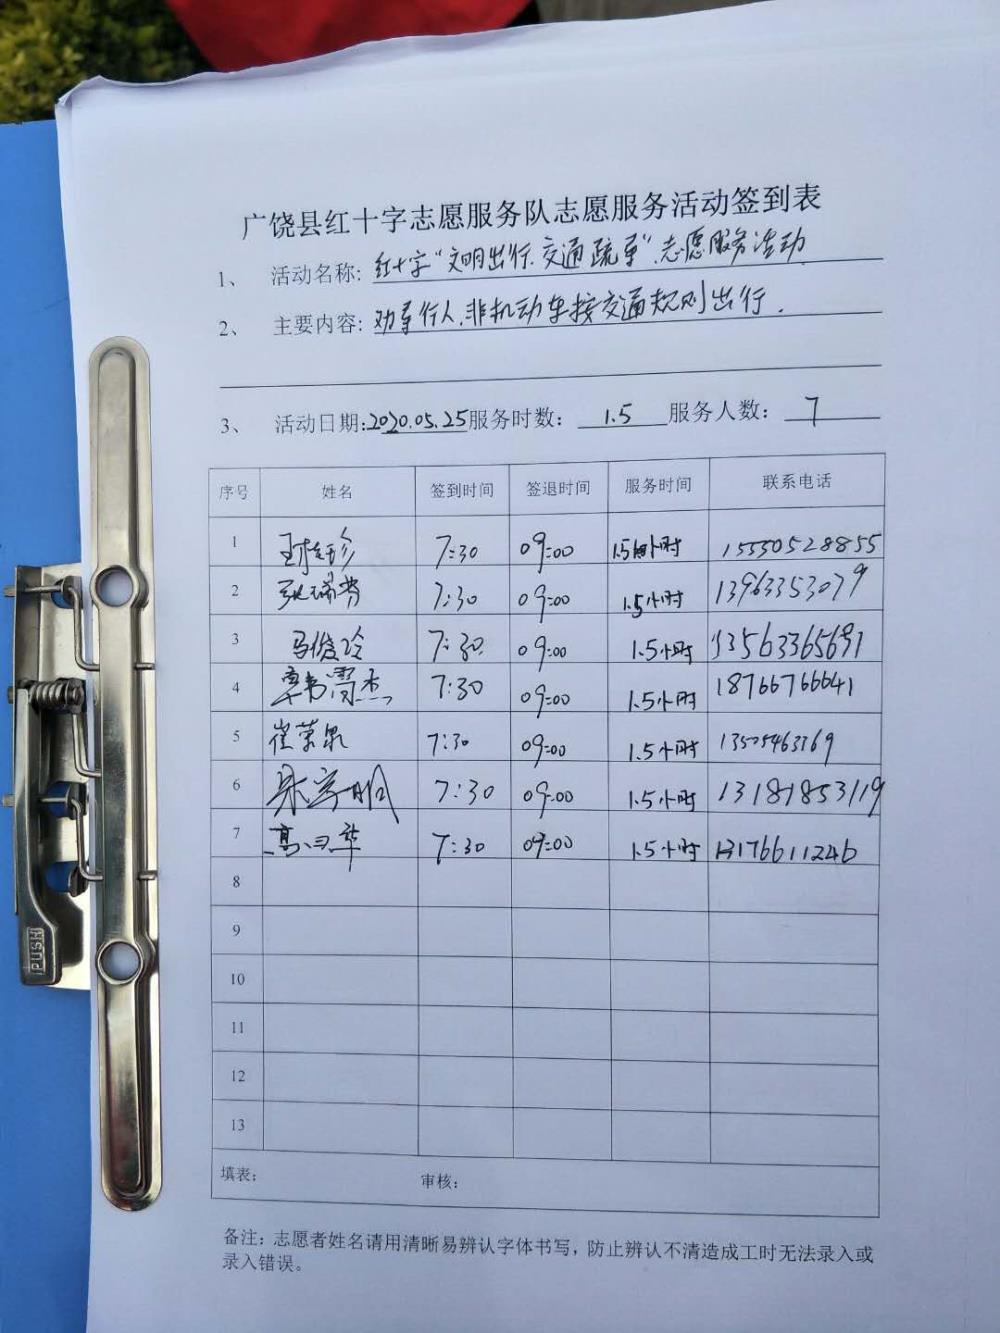 广饶县红十字志愿服务队志愿服务活动签到表
1、 活动名称: 红十字“文明出行.交通疏导”志愿服务活动
2、 主要内容: 劝导行人、非机动车按交通规则出行.
3、 活动日期:2020.05.25 服务时数: 1.5 服务人数: 7
序号 姓名 签到时间 签退时间 服务时间 联系电话
1 王桂珍 7:30 09:00 1.5小时 15550528855
2 张瑞芳 7:30 09:00 1.5小时 13963353079
3 马俊玲 7:30 09:00 1.5小时 13563365691
4 7:30 09:00 1.5小时 18766766641
5 崔荣泉 7:30 09:00 1.5小时 13505463769
6 7:30 09:00 1.5小时 13181853119
7 7:30 09:00 1.5小时 13176611246
8
9
10
11
12
13
填表: 审核:
备注:志愿者姓名请用清晰易辨认字体书写,防止辨认不清造成工时无法录入或
录入错误。
PUSH